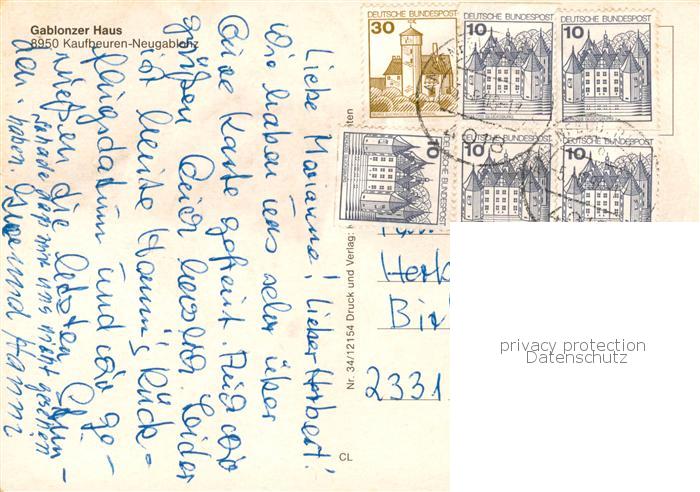 Gablonzer Haus
8950 Kaufbeuren-Neugablonz
Liebe Marianne! Lieber Herbert!
Wir haben uns sehr über
Eure Karte gefreut. Auch wir
grüßen Euch herzlich. Leider
ist heute Hanni's Rück-
flugsdatum und wir ge-
nießen die letzten Stun-
den. Schade daß wir uns nicht gesehen
haben. und Hanni
Nr. 34/12154 Druck und Verlag:
CL
DEUTSCHE BUNDESPOST
30
DEUTSCHE BUNDESPOST
10
DEUTSCHE BUNDESPOST
10
DEUTSCHE BUNDESPOST
10
DEUTSCHE BUNDESPOST
10
DEUTSCHE BUNDESPOST
10
2331
privacy protection
Datenschutz